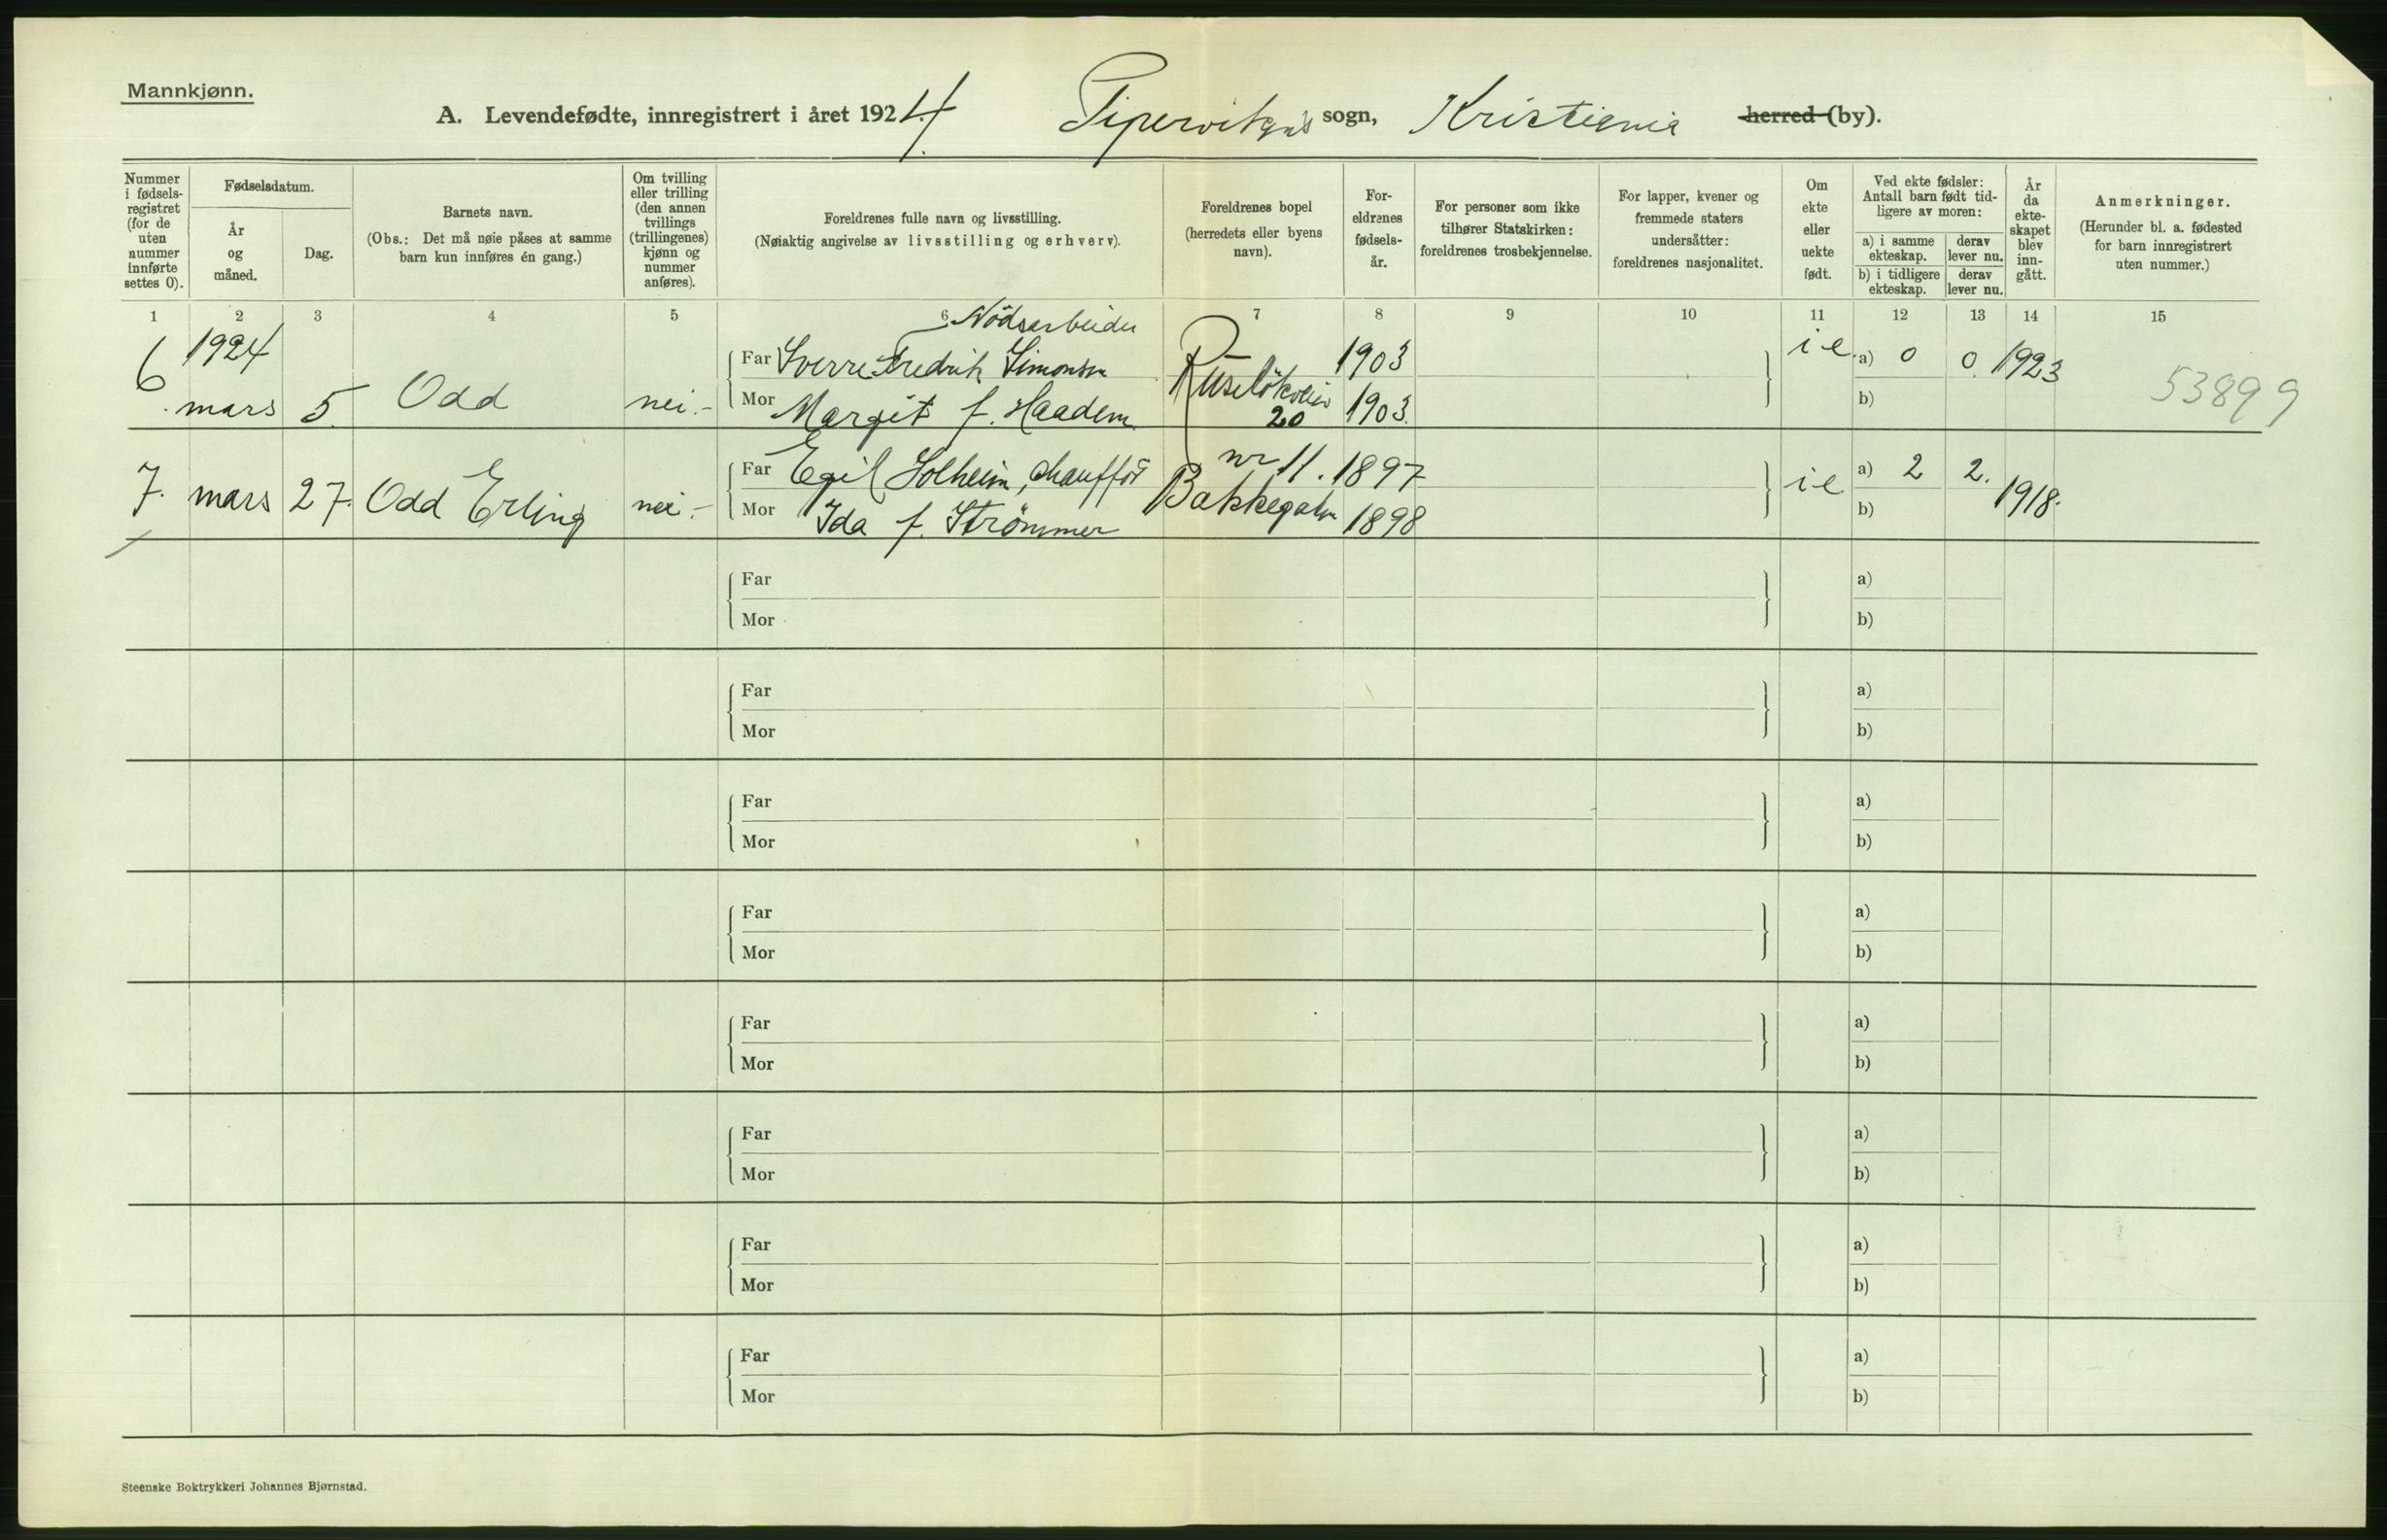 Mannkjønn.
A. Levendefødte, innregistrert i året 1924 Pipervikens sogn, Kristiania herred (by).
Nummer i fødsels- registret (for de uten nummer innførte settes 0).
Fødselsdatum.
År og måned.
Dag.
Barnets navn.
(Obs.: Det må nøie påses at samme barn kun innføres én gang.)
Om tvilling eller trilling (den annen tvillings (trillingenes) kjønn og nummer anføres).
Foreldrenes fulle navn og livsstilling.
(Nøiaktig angivelse av livsstilling og erhverv).
Foreldrenes bopel (herredets eller byens navn).
For- eldrenes fødsels- år.
For personer som ikke tilhører Statskirken: foreldrenes trosbekjennelse.
For lapper, kvener og fremmede staters undersåtter: foreldrenes nasjonalitet.
Om ekte eller uekte født.
Ved ekte fødsler: Antall barn født tid- ligere av moren:
a) i samme ekteskap.
derav lever nu.
b) i tidligere ekteskap.
derav lever nu.
År da ekte- skapet blev inn- gått.
Anmerkninger.
(Herunder bl. a. fødested for barn innregistrert uten nummer.)
1 2 3 4 5 6 7 8 9 10 11 12 13 14 15
Nödsarbeider
6 1924 Far Sverre Fredrik Simonsen 1903 i e. a) 0 0. 1923
. mars 5. Odd nei.- Mor Margit f. Haadem Ruseløkveien 20 1903. b) 53899
7. mars 27. Odd Erling nei.- Far Egil Solheim, chaufför nr 11. 1897 i e a) 2 2. 1918.
Mor Ida f. Strömmer Bakkegatn 1898 b)
Far a)
Mor b)
Far a)
Mor b)
Far a)
Mor b)
Far a)
Mor b)
Far a)
Mor b)
Far a)
Mor b)
Far a)
Mor b)
Far a)
Mor b)
Steenske Boktrykkeri Johannes Bjørnstad.